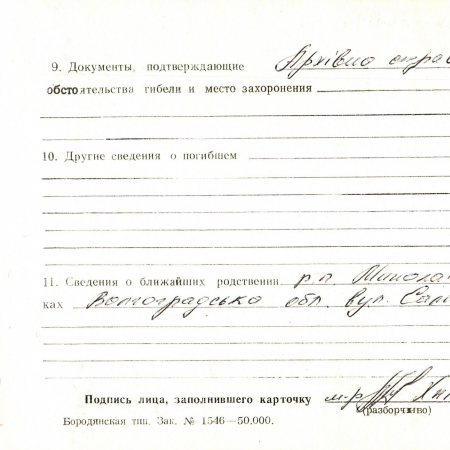 9. Документы, подтверждающие Архівно
обстоятельства гибели и место захоронения
10. Другие сведения о погибшем
11. Сведения о ближайших родствени р.п.
ках Волгоградсько обл. вул.
Подпись лица, заполнившего карточку м-р
(разборчиво)
Бородянская тип. Зак. № 1546—50,000.